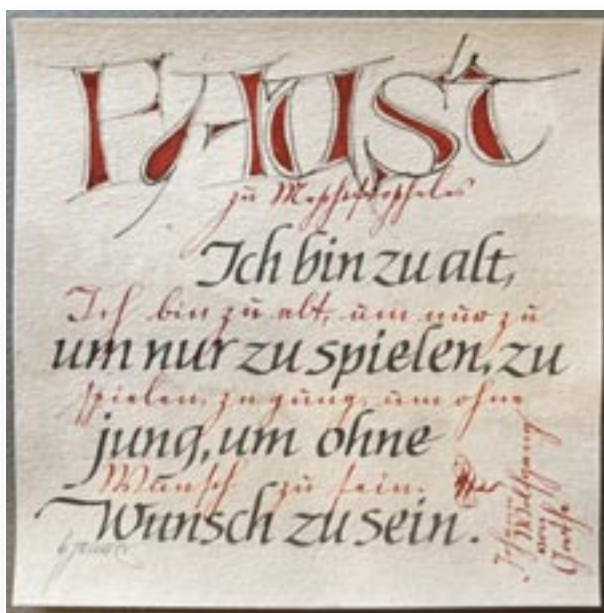 FAUST
zu Mephistopheles
Ich bin zu alt,
Ich bin zu alt, um nur zu
um nur zu spielen, zu
spielen, zu jung, um ohne
jung, um ohne
Wunsch zu sein.
Wunsch zu sein.
Johann
Wolfgang
von
Goethe